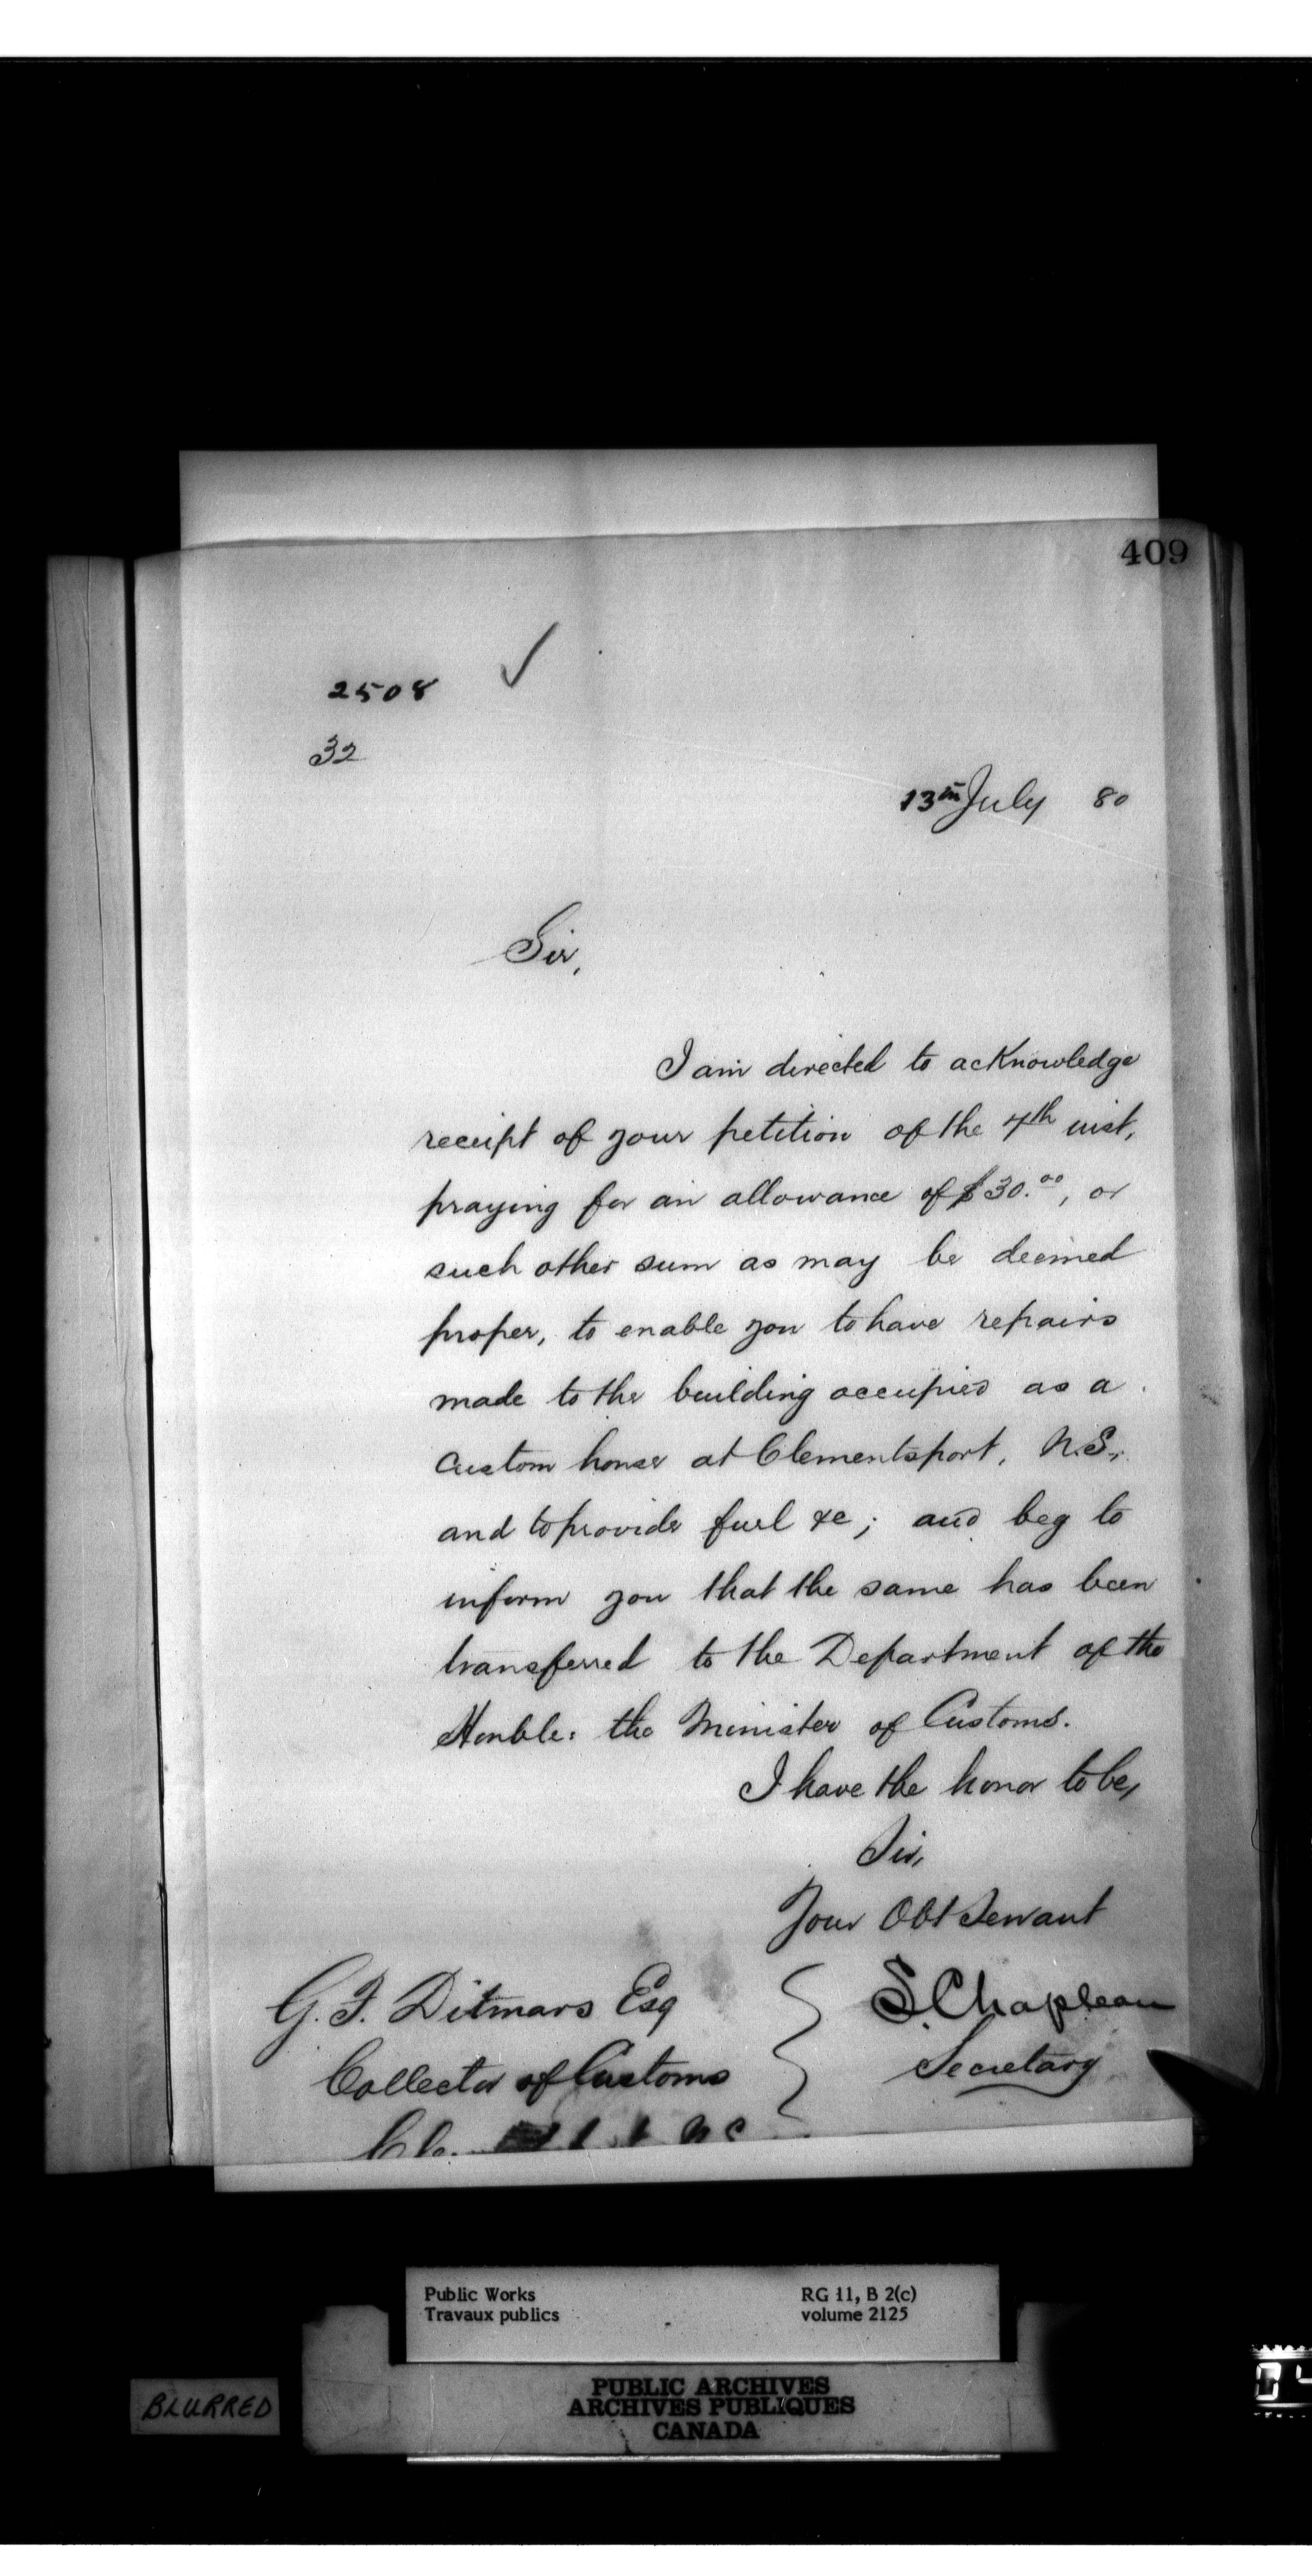 409
2508 ✓
32
13th July 80
Sir,
I am directed to acknowledge
receipt of your petition of the 7th inst,
praying for an allowance of $30.00, or
such other sum as may be deemed
proper, to enable you to have repairs
made to the building occupied as a
custom house at Clementsport, N.S.,
and to provide fuel &c; and beg to
inform you that the same has been
transferred to the Department of the
Honble: the Minister of Customs.
I have the honor to be,
Sir,
Your Obt Servant
S. Chapleau
Secretary
G. F. Ditmars Esq
Collector of Customs
Public Works
Travaux publics
RG 11, B 2(c)
volume 2125
BLURRED
PUBLIC ARCHIVES
ARCHIVES PUBLIQUES
CANADA